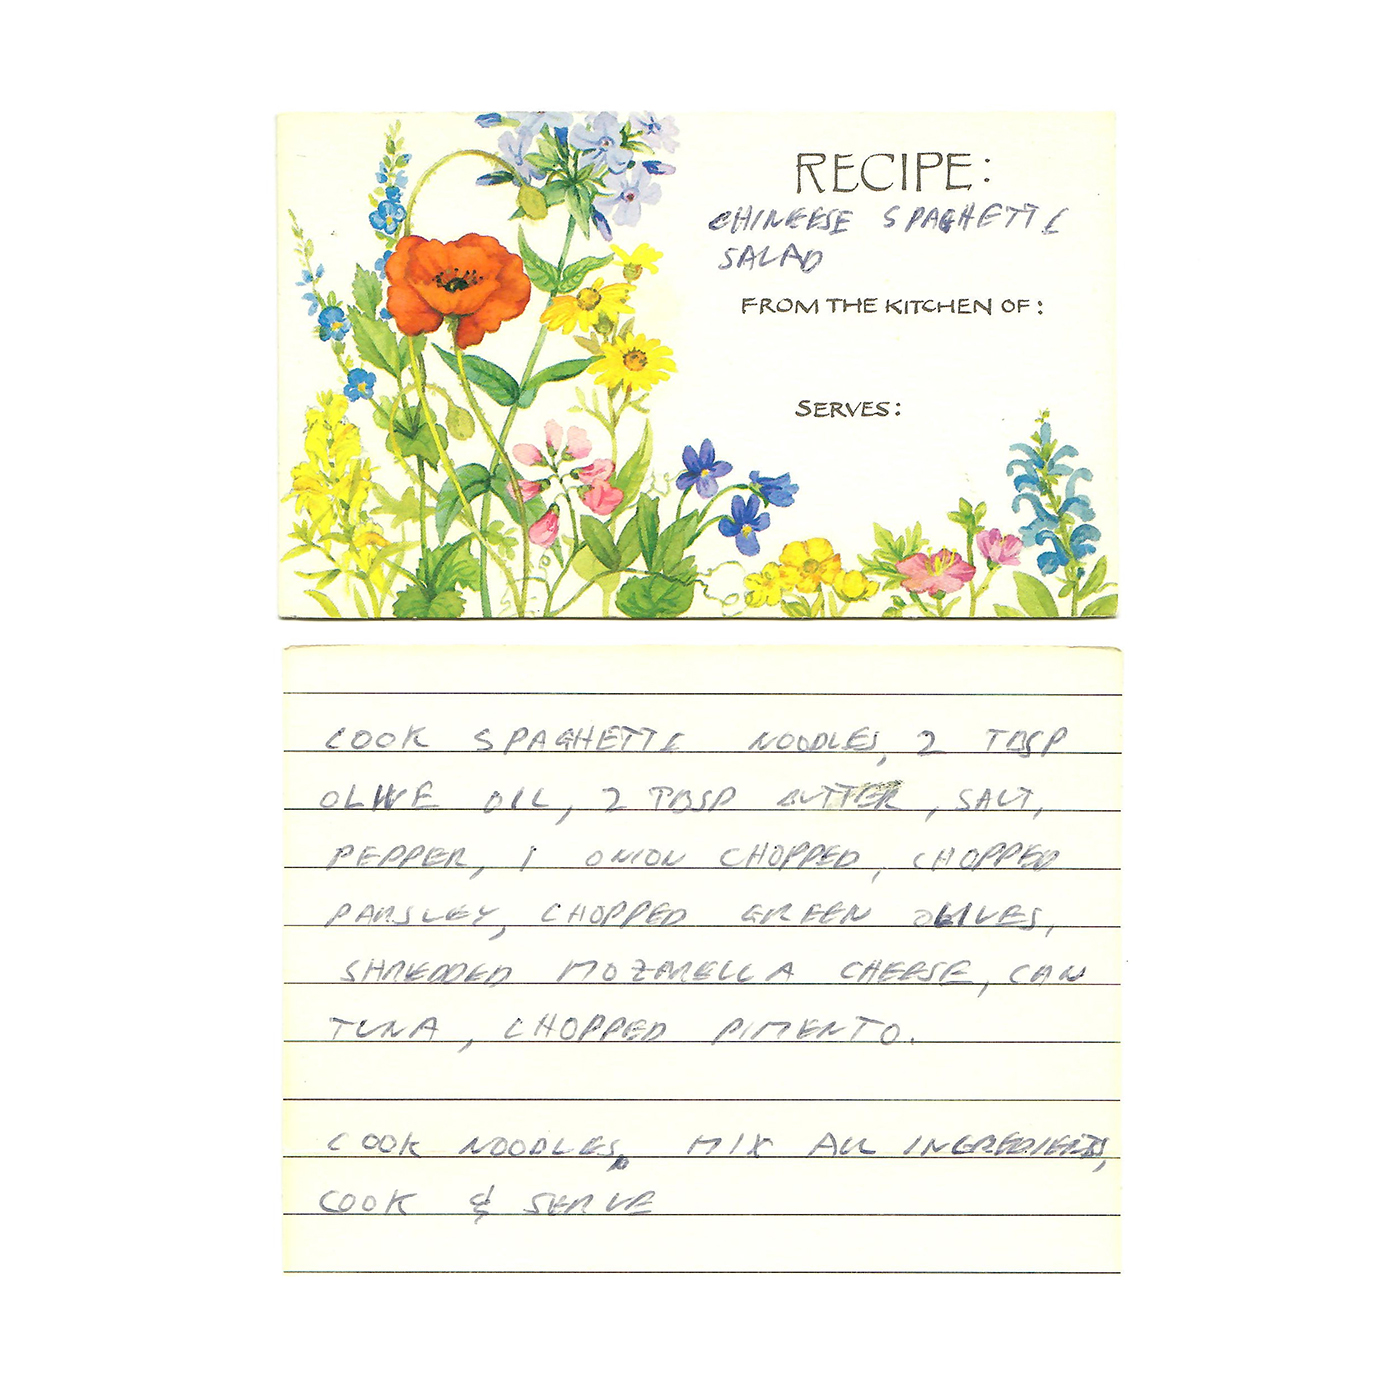 RECIPE:
CHINEESE SPAGHETTI
SALAD
FROM THE KITCHEN OF:
SERVES:
COOK SPAGHETTI NOODLES, 2 TBSP
OLIVE OIL, 2 TBSP BUTTER, SALT,
PEPPER, 1 ONION CHOPPED, CHOPPED
PARSLEY, CHOPPED GREEN OLIVES,
SHREDDED MOZARELLA CHEESE, CAN
TUNA, CHOPPED PIMENTO.
COOK NOODLES, MIX ALL INGREDIENTS,
COOK & SERVE